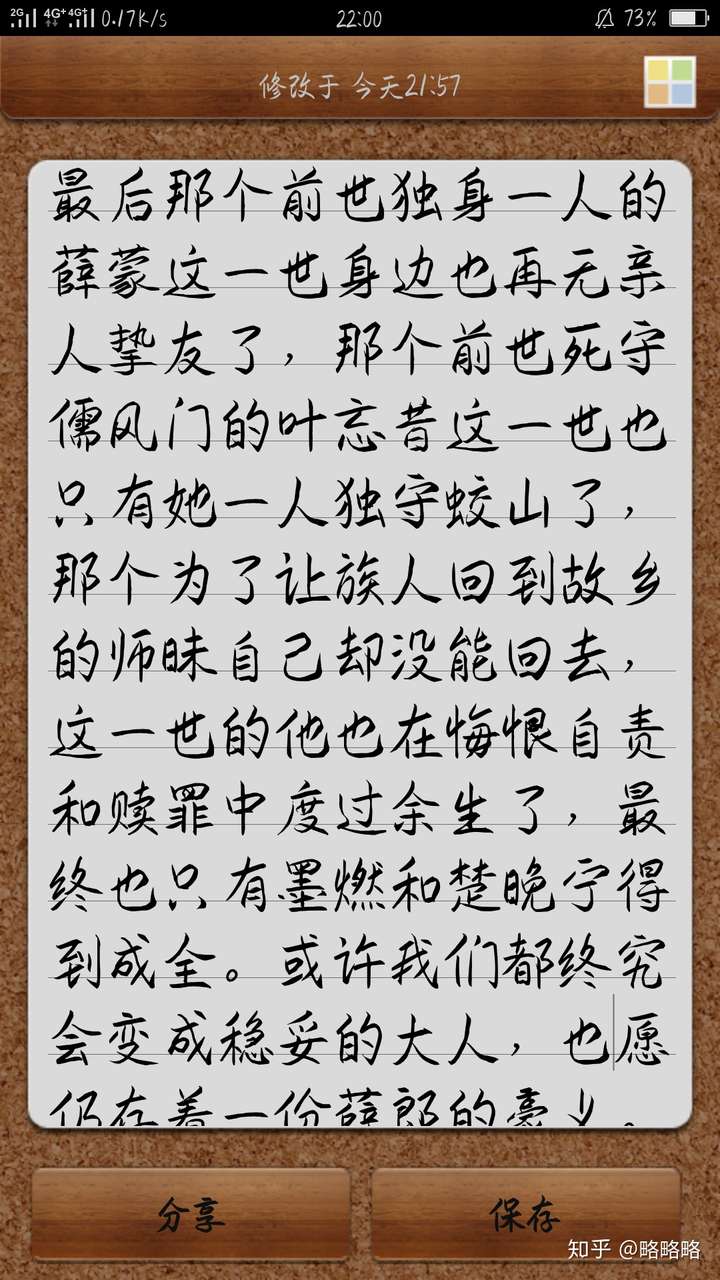 2G 4G+ 4G+ 0.17K/s 22:00 73%
修改于 今天21:57
最后那个前世独身一人的
薛蒙这一世身边也再无亲
人挚友了，那个前世死守
儒风门的叶忘昔这一世也
只有她一人独守蛟山了，
那个为了让族人回到故乡
的师昧自己却没能回去，
这一世的他也在悔恨自责
和赎罪中度过余生了，最
终也只有墨燃和楚晚宁得
到成全。或许我们都终究
会变成稳妥的大人，也愿
仍存着一份薛郎的豪义。
分享 保存
知乎 @略略略